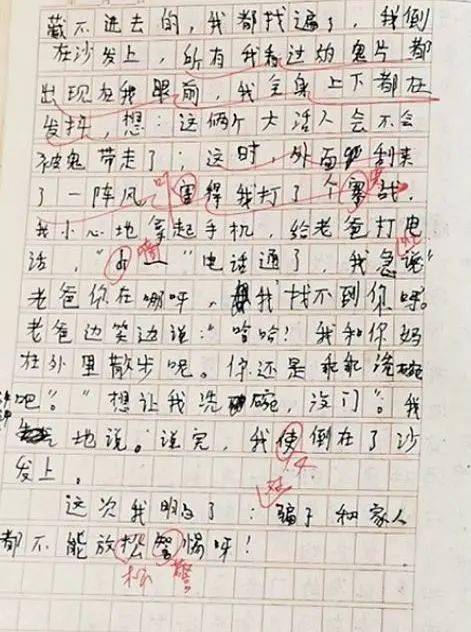 藏不进去的，我都找遍了，我倒
在沙发上，所有我看过的鬼片都
出现在我眼前，我全身上下都在
发抖，想：这俩个大活人会不会
被鬼带走了；这时，外面 刮来
了一阵风，害得我打了个寒战，
我小心地拿起手机，给老爸打电
话，" "电话通了，我急说"
老爸你在哪呀，我找不到你呀。
老爸边笑边说："哈哈！我和你妈
在外里散步呢。你还是乖乖洗碗
吧"。"想让我洗碗，没门"。我
地说。说完，我使倒在了沙
发上。
这次我明白了：骗子和家人
都不能放松 惕呀！
松 警